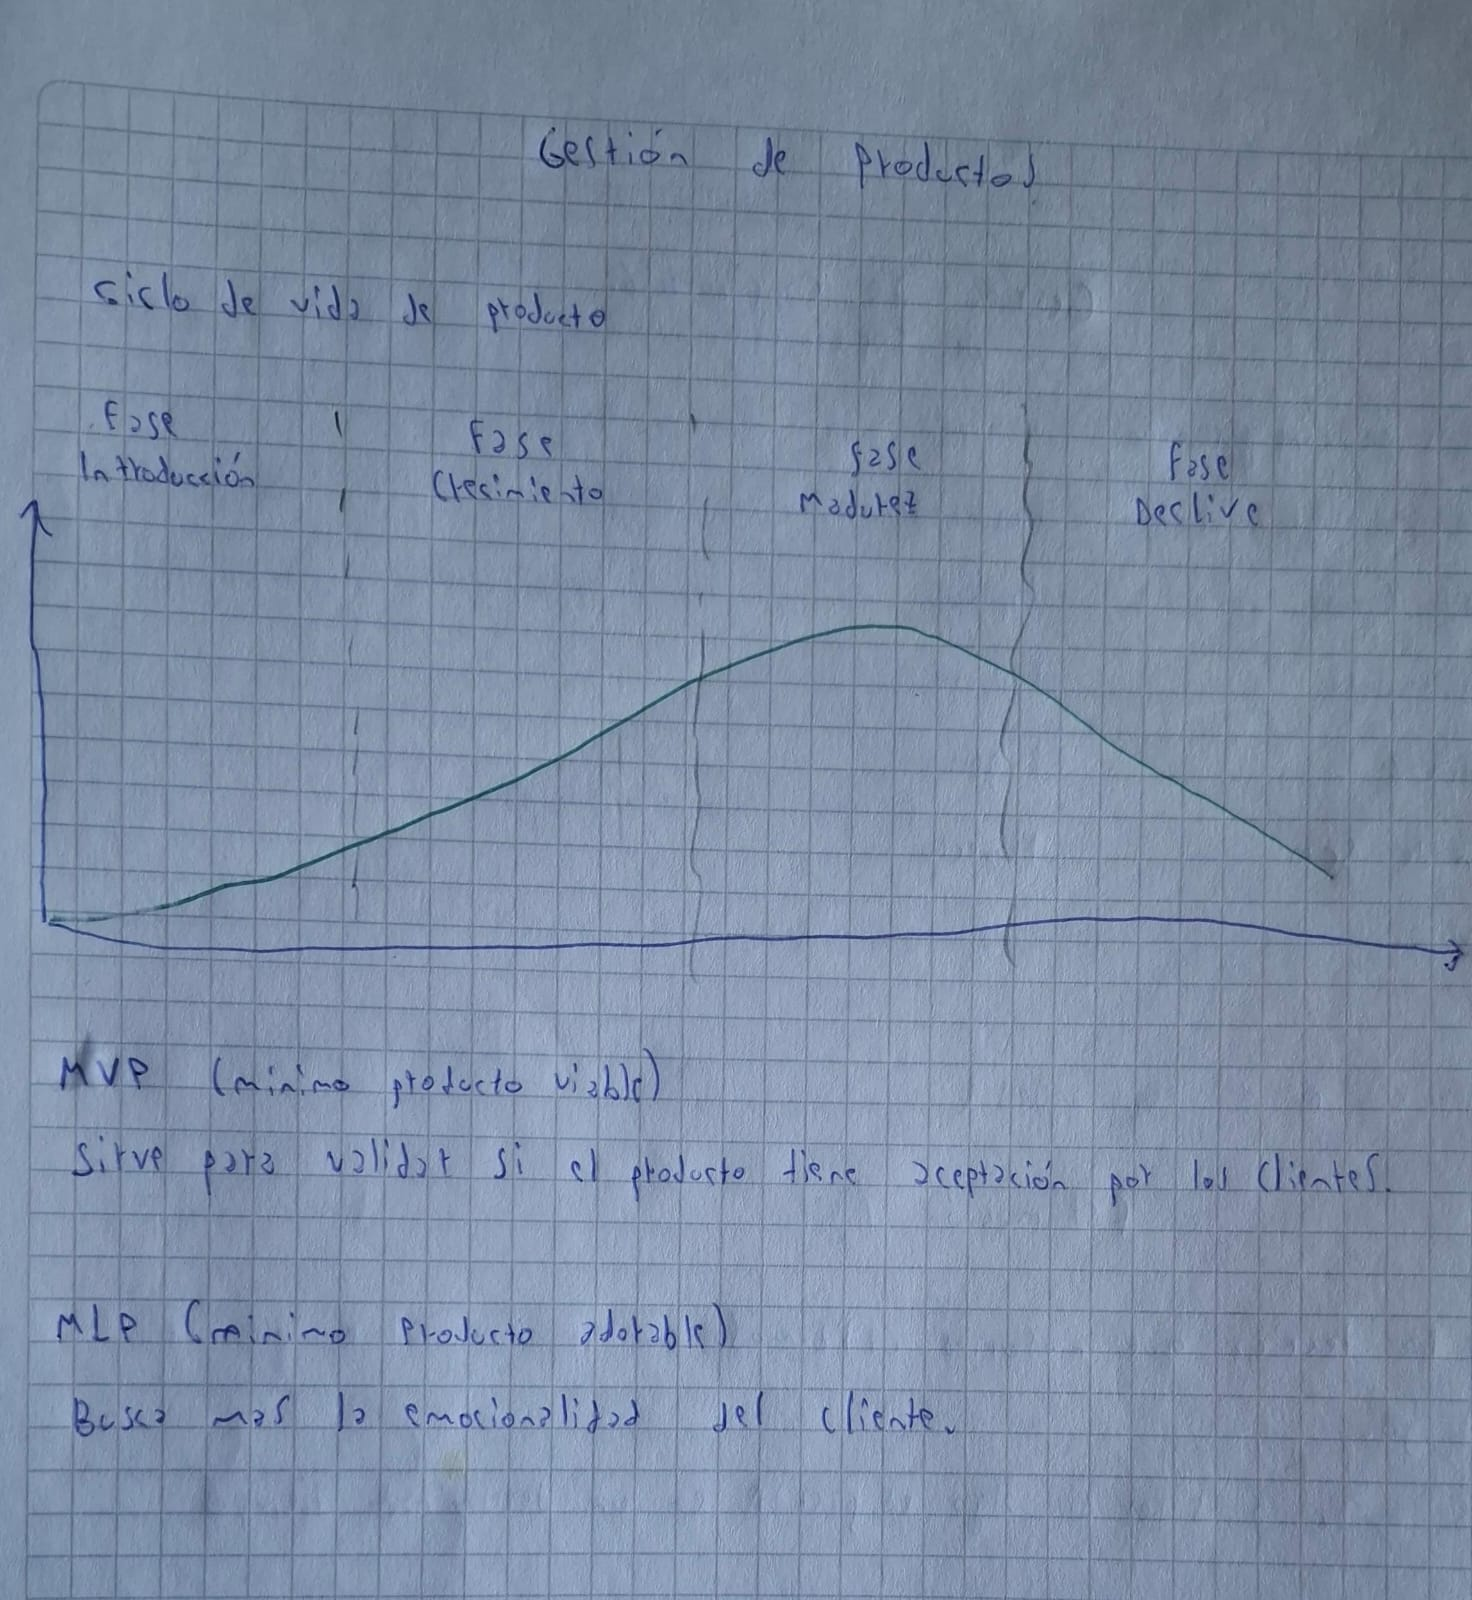 Gestión de Productos
Ciclo de vida de producto
Fase Fase fase Fase
Introducción Cresimiento Madurez Declive
MVP (minimo producto viable)
Sirve para validar si el producto tiene aceptación por los clientes.
MLP (minimo Producto adorable)
Busca mas la emocionalidad del cliente.